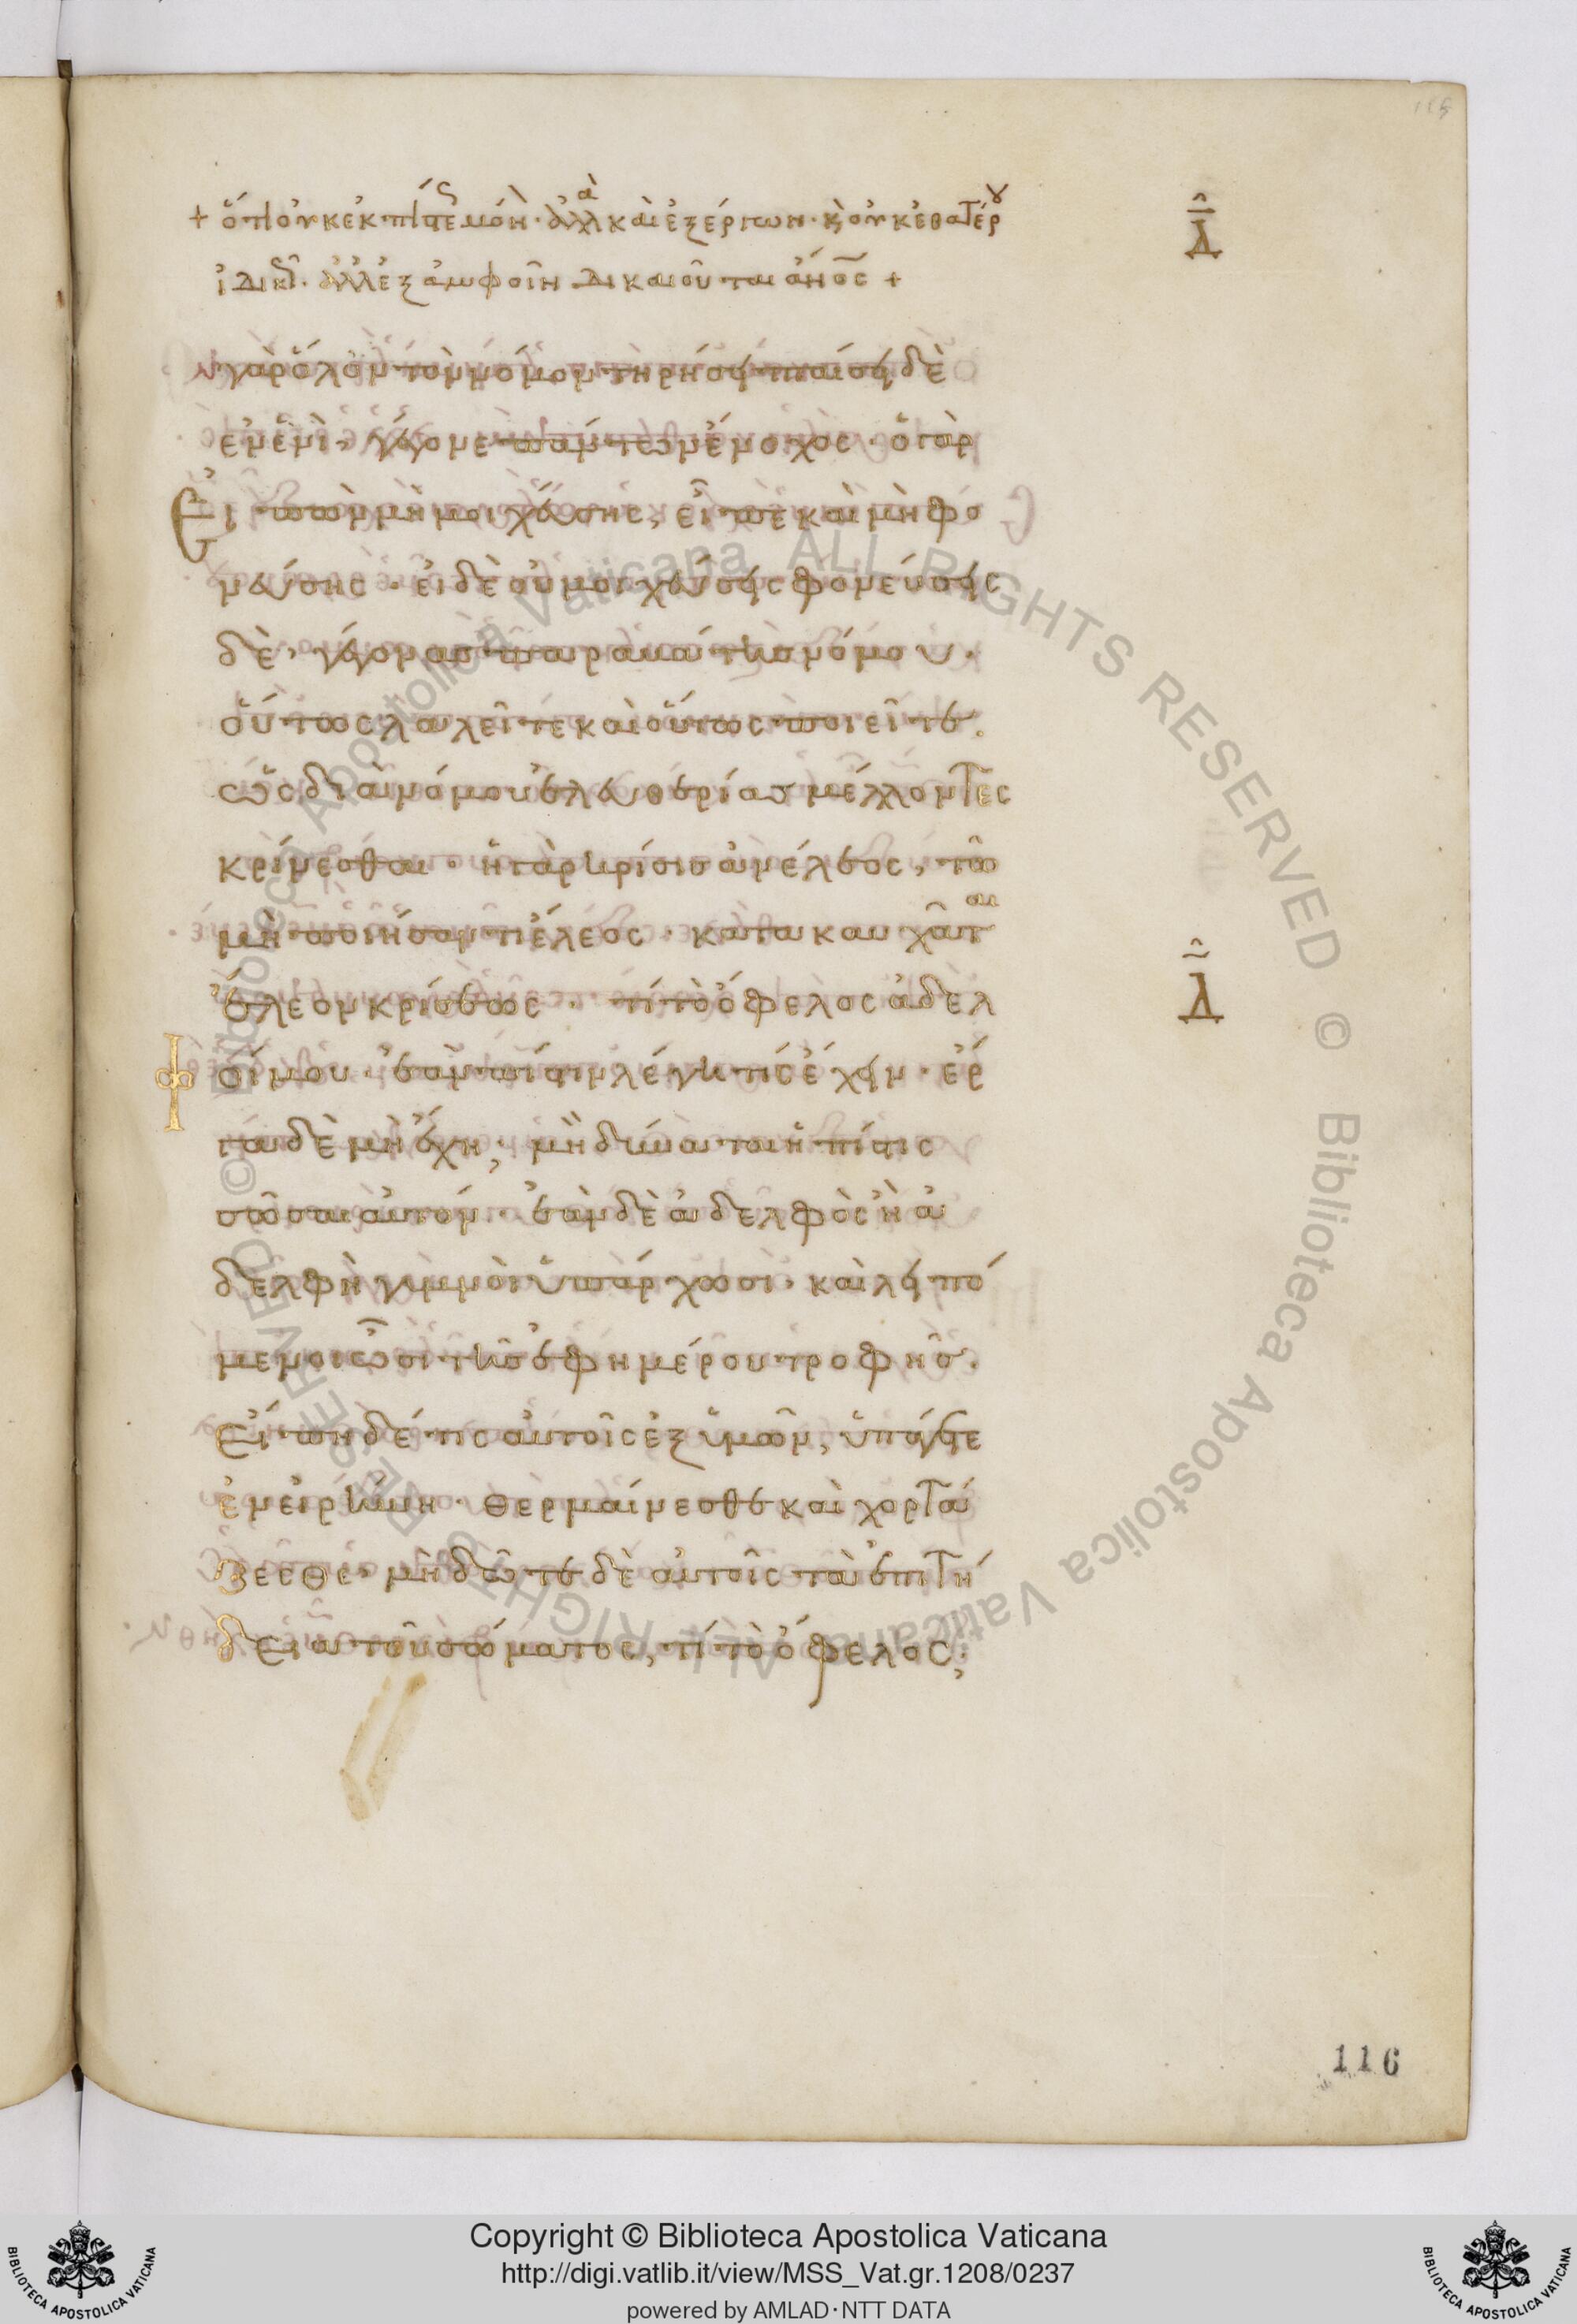 115
+ ὅτι οὐκ ἐκ πίστεως μόνη· ἀλλὰ καὶ ἐξ ἔργων· κ οὐκ ἐθατέρου
ἰδικῶ· ἀλλ' ἐξ ἀμφοῖν δικαιοῦται ἄνος +
Δ
γὰρ ὅλον τὸν νόμον τηρήσει πταίσει δὲ
ἐν ἑνὶ, γέγονε πάντων ἔνοχος· ὁ γὰρ
Εἰπὼν μὴ μοιχεύσης, εἶπε καὶ μὴ φο
νεύσης· εἰ δὲ οὐ μοιχεύσεις φονεύσεις
δὲ, γέγονας παραβάτης νόμου·
οὕτως λαλεῖτε καὶ οὕτως ποιεῖτε·
ὡς διὰ νόμου ἐλευθερίας μέλλοντες
κρίνεσθαι· ἡ γὰρ κρίσις ἀνέλεος, τῶ
μὴ ποιήσαντι ἔλεος· κατακαυχᾶται
ἔλεον κρίσεως· τί τὸ ὄφελος ἀδελ
Δ
φοί μου· ἐὰν πίστιν λέγη τίς ἔχειν· ἔρ
γα δὲ μὴ ἔχη; μὴ δύναται ἡ πίστις
σῶσαι αὐτόν· ἐὰν δὲ ἀδελφὸς ἢ ἀ
δελφὴ γυμνοὶ ὑπάρχωσι· καὶ λειπό
μενοι ὦσι τῆς ἐφημέρου τροφῆς·
Εἴπη δέ τις αὐτοῖς ἐξ ὑμῶν, ὑπάγετε
ἐν εἰρήνη· θερμαίνεσθε καὶ χορτά
ζεσθε· μὴ δῶτε δὲ αὐτοῖς τὰ ἐπιτή
δεια τοῦ σώματος, τί τὸ ὄφελος;
116
© Biblioteca Apostolica Vaticana ALL RIGHTS RESERVED © Biblioteca Apostolica Vaticana ALL RIGHTS RESERVED
Copyright © Biblioteca Apostolica Vaticana
http://digi.vatlib.it/view/MSS_Vat.gr.1208/0237
powered by AMLAD·NTT DATA
BIBLIOTECA APOSTOLICA VATICANA
BIBLIOTECA APOSTOLICA VATICANA